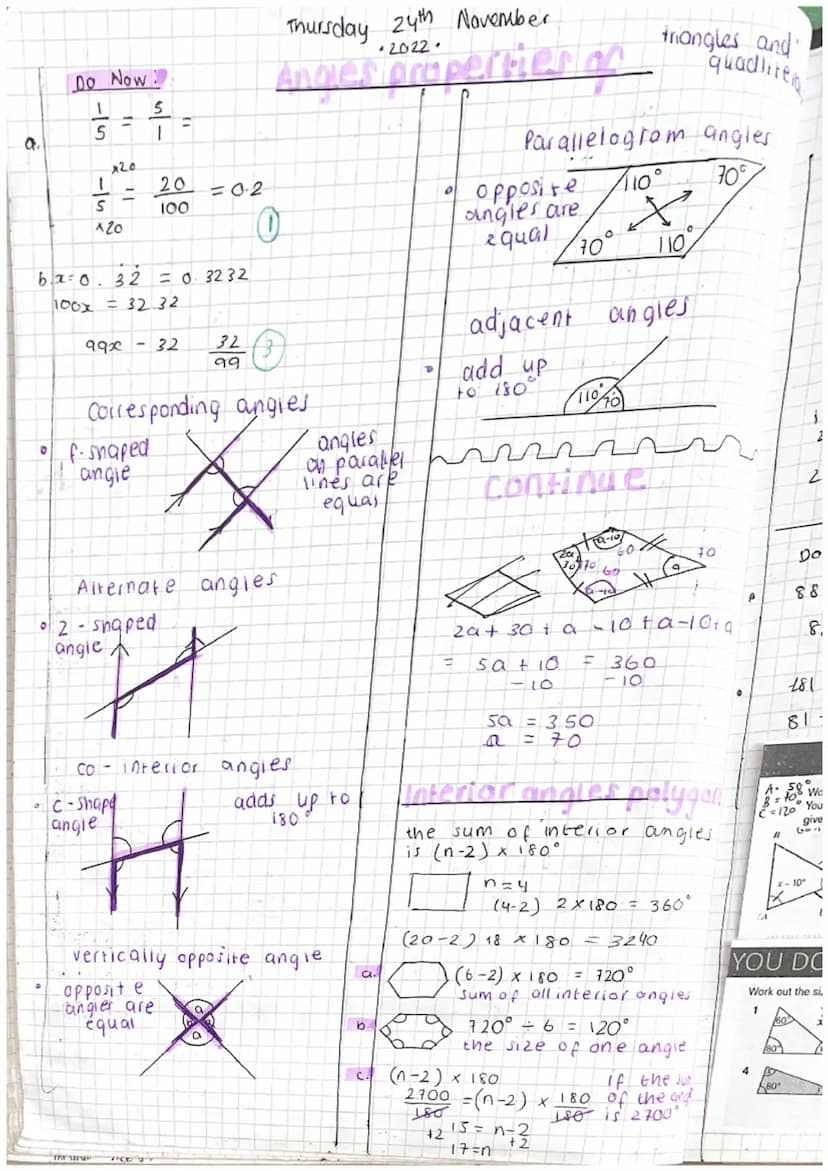 Thursday 24th November
·2022·
Angles properties of
triangles and
quadlitera
Do Now:
a.
1/5 = 5/1 =
×20
1/5 = 20/100 = 0.2
×20
1
b. x = 0.3̇2̇ = 0.3232
100x = 32.32
99x - 32 32/99
3
Corresponding angles
f-shaped
angle
angles
on parallel
lines are
equal
Alternate angles
Z-shaped
angle
co-interior angles
C-shape
angle
adds up to
180°
vertically opposite angle
opposite
angles are
equal
a
a
Parallelogram angles
opposite
angles are
equal
110° 70°
70° 110°
adjacent angles
add up
to 180°
110° 70
continue
2a 30 70 a-10 60 70
60 a-10 a
2a + 30 + a - 10 + a - 10 + a
= 5a + 10 = 360
-10 -10
5a = 350
a = 70
Interior angles polygon
the sum of interior angles
is (n-2) × 180°
n = 4
(4-2) 2×180 = 360°
(20-2) 18 × 180 = 3240
a. (6-2) × 180 = 720°
sum of all interior angles
b. 720° ÷ 6 = 120°
the size of one angle
c. (n-2) × 180
if the sum
2700/180 = (n-2) × 180/180
of the
is 2700°
+2 15 = n-2 +2
17 = n
2
Do
88
8.
181
81
A = 50°
B = 70°
C = 120°
Wo
You
give
B
x-10°
YOU DO
Work out the si
1
60°
80°
4
80°